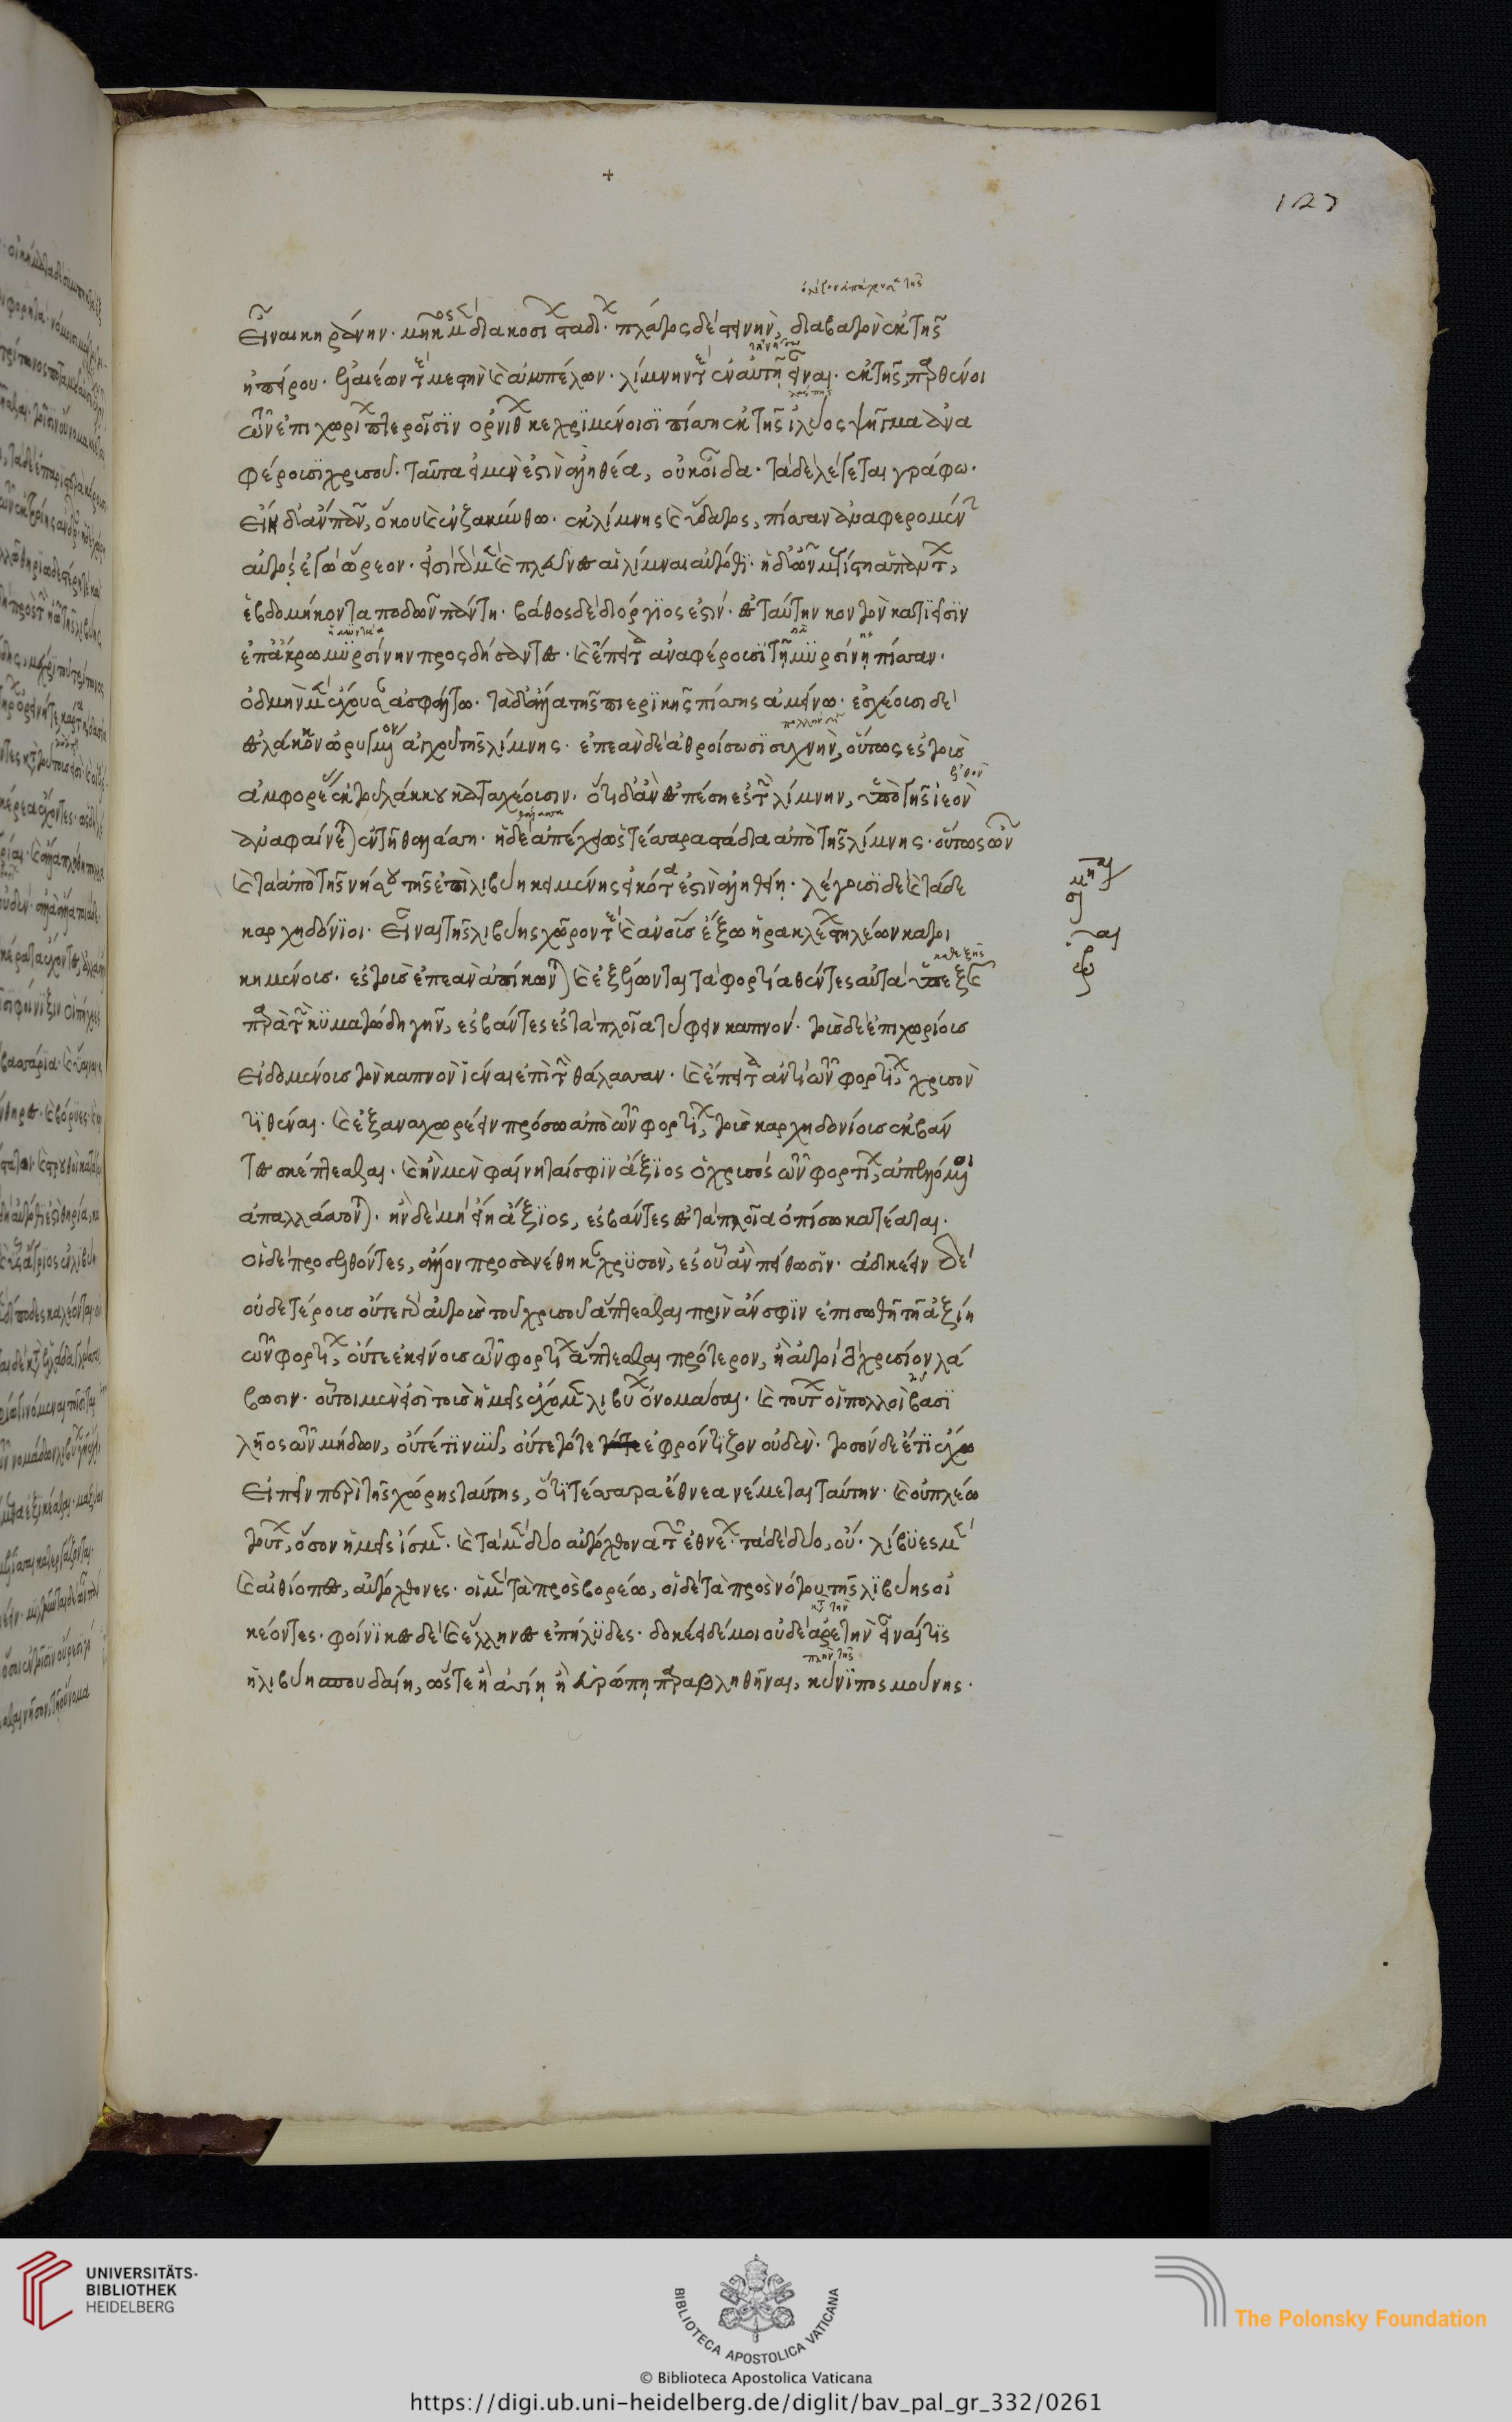 +
127
εἶναι κύραυνιν. μῆκος μὲν διακοσίων σταδίων. πλάτος δὲ στεινὴν, διαβατὸν ἐκ τῆς
ἠπείρου. ἐλαιέων τε μεστὴν καὶ ἀμπέλων. λίμνην τε ἐν αὐτῆ εἶναι. ἐκ τῆς, παρθένοι
τῶν ἐπιχωρίων πτεροῖσιν ὀρνίθων κεχριμένοισι πίσση ἐκ τῆς ἰλύος ψῆγμα ἀνα
φέρουσι χρυσοῦ. ταῦτα εἰ μὲν ἔστιν ἀληθέα, οὐκ οἶδα. τὰ δὲ λέγεται γράφω.
εἴη δ' ἂν πᾶν, ὅκου καὶ ἐν ζακύνθω. ἐκ λίμνης καὶ ὕδατος, πίσσαν ἀναφερομένην
αὐτὸς ἐγὼ ὥρεον. εἰσὶ μὲν καὶ πλεῦνες αἱ λίμναι αὐτόθι. ἡ δ' ὦν μεγίστη αὐτέων,
ἑβδομήκοντα ποδῶν πάντη. βάθος δὲ διόργυιος ἐστίν. ἐς ταύτην κοντὸν κατιεῖσιν
ἐπάκρω μυρσίνην προσδήσαντες. καὶ ἔπειτα ἀναφέρουσι τῆ μυρσίνη πίσσαν.
ὀδμὴν μὲν ἔχουσαν ἀσφάλτω. τὰ δ' ἄλλα τῆς πιερικῆς πίσσης ἀμείνω. ἐσχέουσι δὲ
ἐς λάκκον ὀρωρυγμένον ἀγχοῦ τῆς λίμνης. ἐπεὰν δὲ ἀθροίσωσι συχνὴν, οὕτως ἐς τοὺς
ἀμφορέας ἐκ τοῦ λάκκου καταχέουσιν. ὅτι δ' ἂν ἐσπέση ἐς τὴν λίμνην, ὑπὸ γῆς ἰὸν
ἀναφαίνεται ἐν τῆ θαλάσση. ἡ δὲ ἀπέχει ὡς τέσσαρα στάδια ἀπὸ τῆς λίμνης. οὕτως ὦν
καὶ τὰ ἀπὸ τῆς νήσου τῆς ἐπὶ λιβύη κειμένης εἰκότα ἐστὶν ἀληθείη. λέγουσι δὲ καὶ τάδε
καρχηδόνιοι. εἶναι τῆς λιβύης χῶρόν τε καὶ ἀνθρώπους ἔξω ἡρακλείων στηλέων κατοι
κημένους. ἐς τοὺς ἐπεὰν ἀπίκωνται καὶ ἐξέλωνται τὰ φορτία θέντες αὐτὰ ὑπεξῆς
παρὰ τὴν κυματώδη γῆν, ἐσβάντες ἐς τὰ πλοῖα τύφειν καπνόν. τοὺς δὲ ἐπιχωρίους
εἰδομένους τὸν καπνὸν ἰέναι ἐπὶ τὴν θάλασσαν. καὶ ἔπειτα ἀντὶ τῶν φορτίων, χρυσὸν
τιθέναι. καὶ ἐξαναχωρέειν πρόσω ἀπὸ τῶν φορτίων, τοὺς καρχηδονίους ἐκβάν
τας σκέπτεσθαι. καὶ ἢν μὲν φαίνηταί σφιν ἄξιος ὁ χρυσὸς τῶν φορτίων, ἀνελόμενοι
ἀπαλλάσσονται. ἢν δὲ μὴ εἴη ἄξιος, ἐσβάντες ἐς τὰ πλοῖα ὀπίσω κατέαται.
οἱ δὲ προσελθόντες, ἄλλον προσανέθηκαν χρυσὸν, ἐς οὗ ἂν πείθωσιν. ἀδικέειν δὲ
οὐδετέρους οὔτε γὰρ αὐτοὺς τοῦ χρυσοῦ ἅπτεσθαι πρὶν ἄν σφιν ἐπισωθῆ τῆ ἀξίη
τῶν φορτίων, οὔτε ἐκείνους τῶν φορτίων ἅπτεσθαι πρότερον, ἢ αὐτοὶ τὸ χρυσίον λά
βωσιν. οὗτοι μέν εἰσι τοὺς ἡμεῖς ἔχομεν λιβύων ὀνομάσαι. καὶ τούτων οἱ πολλοὶ βασι
λῆος τῶν μήδων, οὔτέ τι νῦν, οὔτε τότε ἐφρόντιζον οὐδέν. τοσόνδε ἔτι ἔχω
εἰπεῖν περὶ τῆς χώρης ταύτης, ὅτι τέσσαρα ἔθνεα νέμεται ταύτην. καὶ οὐ πλέω
τούτων, ὅσον ἡμεῖς ἴσμεν. καὶ τὰ μὲν δύο αὐτόχθονα τῶν ἐθνέων. τὰ δὲ δύο, οὔ. λίβυες μὲν
καὶ αἰθίοπες, αὐτόχθονες. οἱ μὲν τὰ πρὸς βορέω, οἱ δὲ τὰ πρὸς νότου τῆς λιβύης οἰ
κέοντες. φοίνικες δὲ καὶ ἕλληνες ἐπήλυδες. δοκέει δέ μοι οὐδὲ ἀρετὴν εἶναί τις
ἡ λιβύη σπουδαίη, ὥστε ἢ ἀσίη ἢ εὐρώπη παραβληθῆναι, κίνυπος μούνης.
UNIVERSITÄTS-
BIBLIOTHEK
HEIDELBERG
BIBLIOTECA APOSTOLICA VATICANA
The Polonsky Foundation
© Biblioteca Apostolica Vaticana
https://digi.ub.uni-heidelberg.de/diglit/bav_pal_gr_332/0261